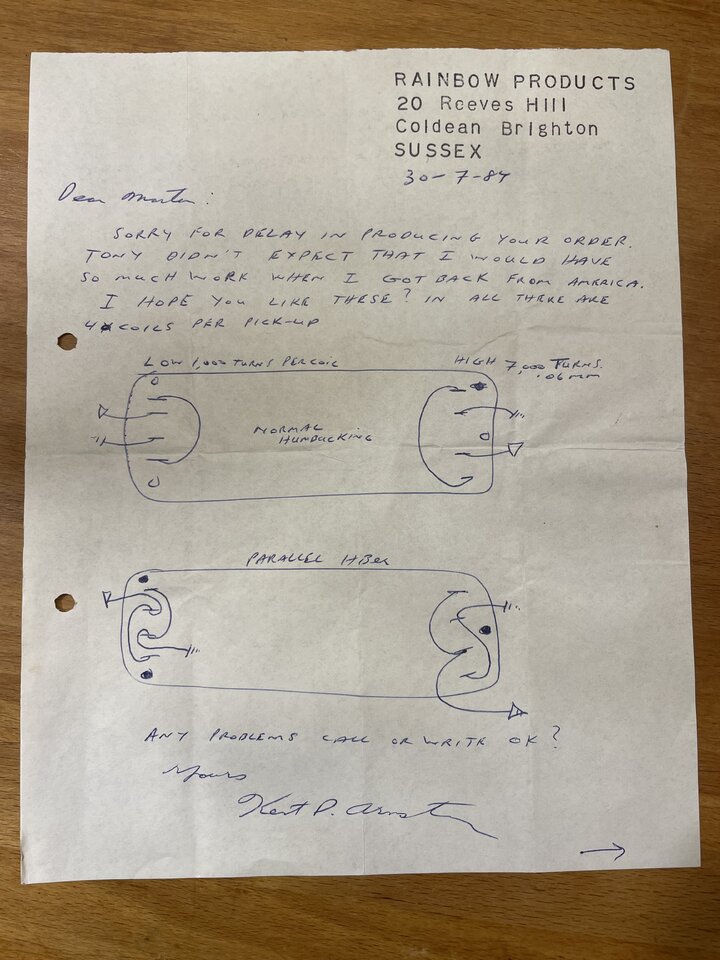 RAINBOW PRODUCTS
20 Reeves Hill
Coldean Brighton
SUSSEX
30-7-84
Dear Martin:
SORRY FOR DELAY IN PRODUCING YOUR ORDER.
TONY DIDN'T EXPECT THAT I WOULD HAVE
SO MUCH WORK WHEN I GOT BACK FROM AMERICA.
I HOPE YOU LIKE THESE? IN ALL THERE ARE
4 COILS PER PICK-UP
LOW 1,000 TURNS PER COIL
HIGH 7,000 TURNS.
.06MM
NORMAL
HUMBUCKING
PARALLEL HBER
ANY PROBLEMS CALL OR WRITE OK?
Yours
Kent P. Armstrong